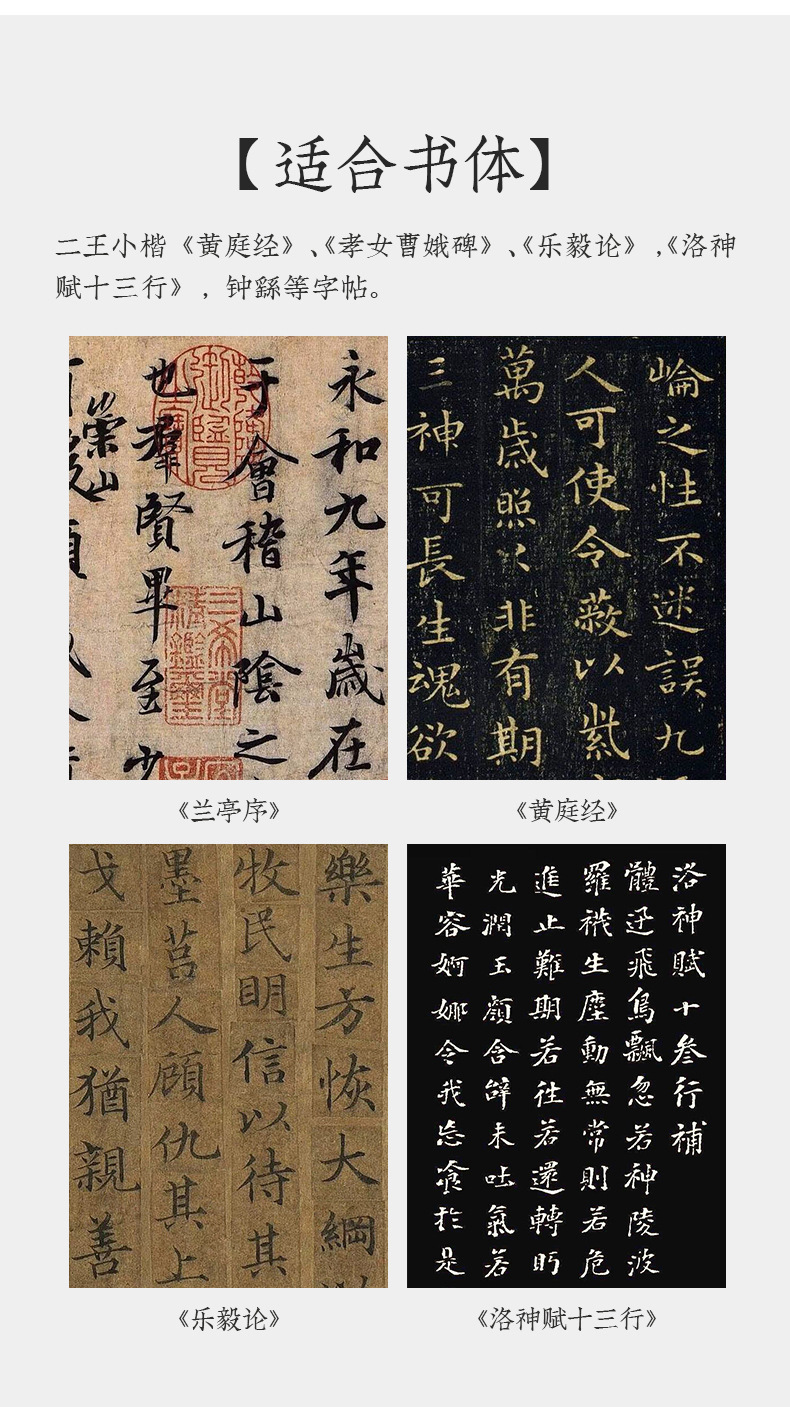 【适合书体】
二王小楷《黄庭经》、《孝女曹娥碑》、《乐毅论》,《洛神
赋十三行》, 钟繇等字帖。
永和九年歲在
于會稽山陰之
也羣賢畢至少
崇山
崘之性不迷誤九
人可使令蔽以紫
萬歲照以非有期
三神可長生魂欲
《兰亭序》
《黄庭经》
樂生方恢大綱以
牧民明信以待其
墨莒人顧仇其上
戈賴我猶親善
洛神賦十叁行補
體迅飛鳥飄忽若神陵波
羅襪生塵動無常則若危
進止難期若往若還轉眄
光潤玉顏含辭未吐氣若
華容婀娜令我忘飡於是
《乐毅论》
《洛神赋十三行》